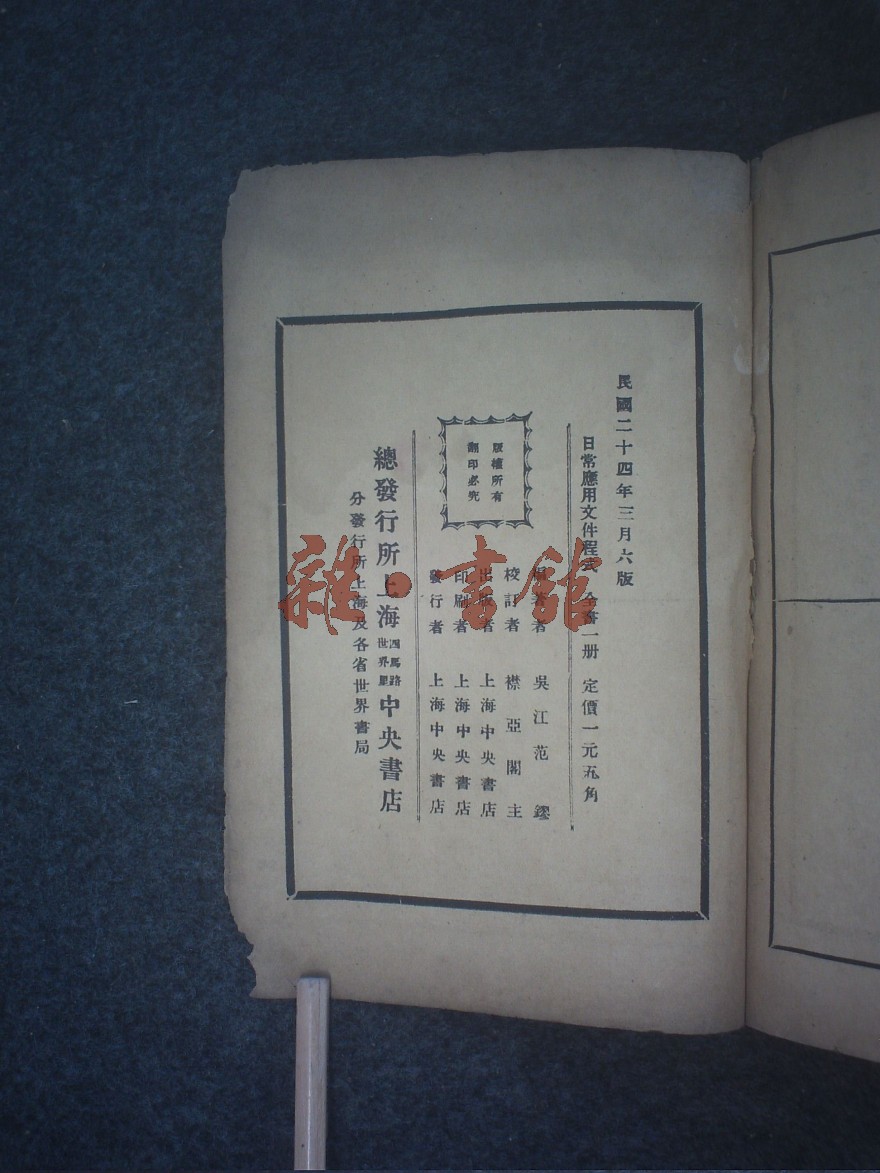 民國二十四年三月六版
日常應用文件程式 全書一册 定價一元五角
版權所有
翻印必究
編著者 吳江范鏐
校訂者 襟亞閣主
出版者 上海中央書店
印刷者 上海中央書店
發行者 上海中央書店
總發行所上海四馬路世界里中央書店
分發行所上海及各省世界書局
雜·書館